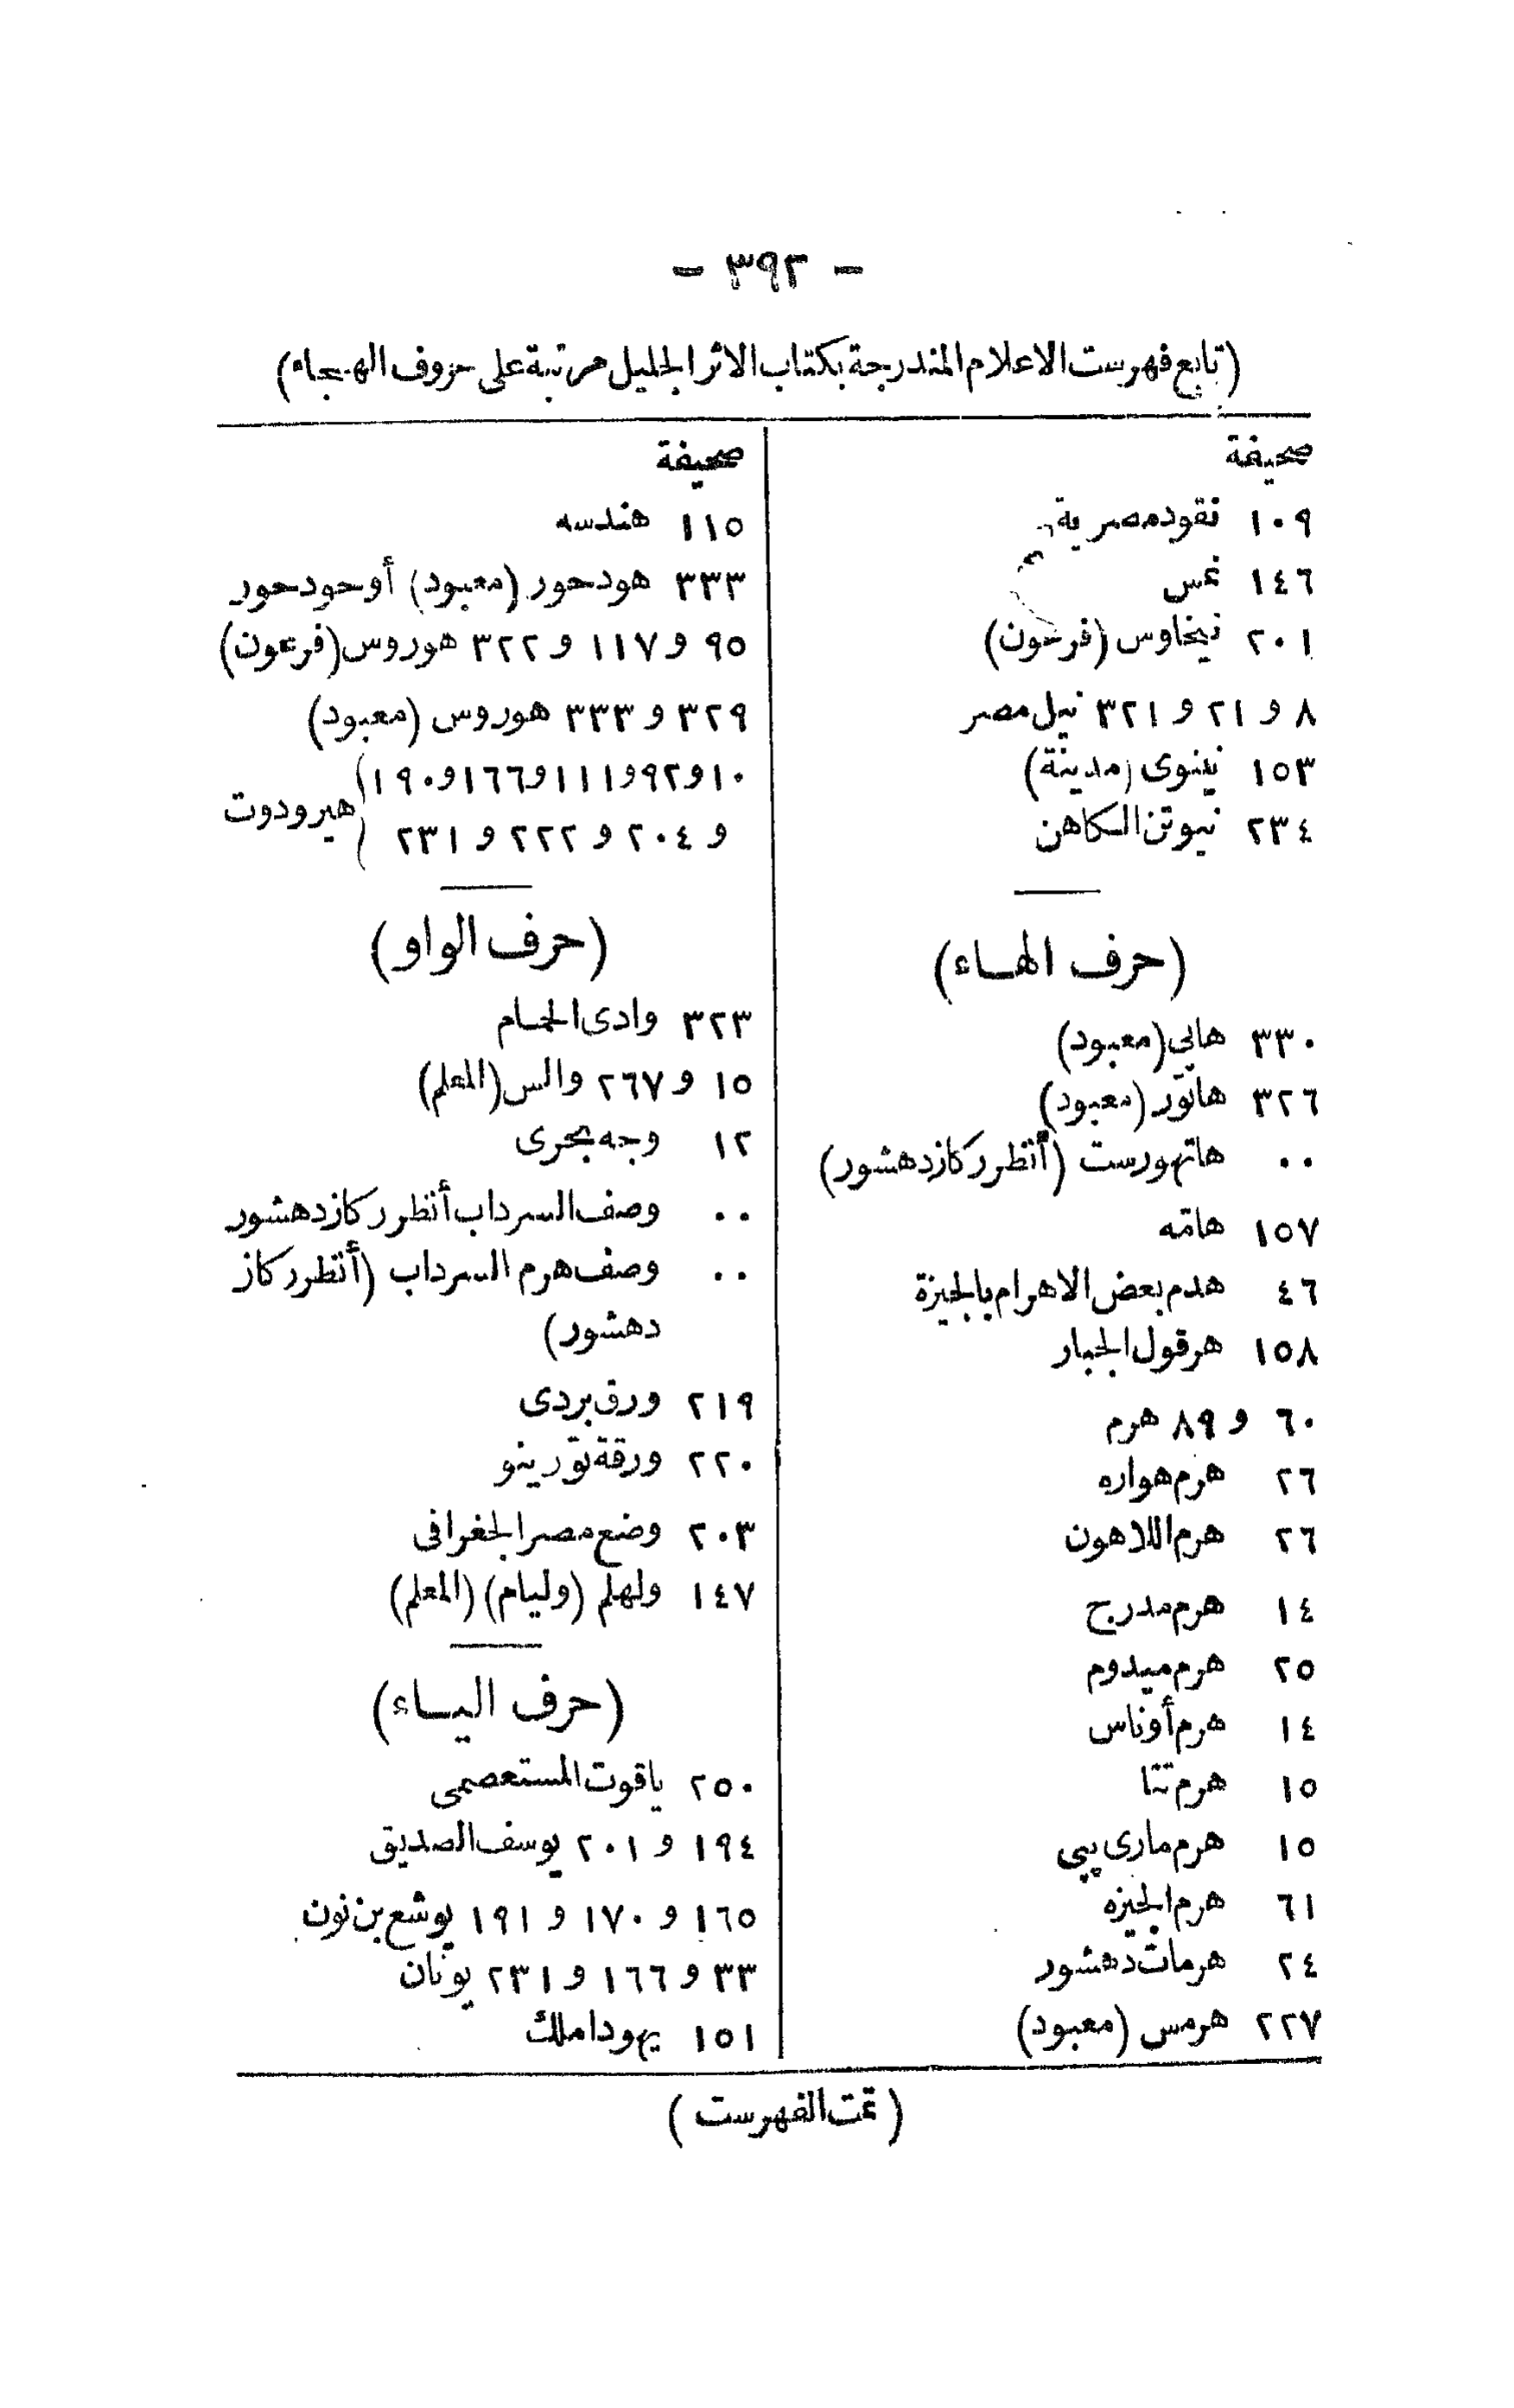 - ٣٩٢ -
(تابع فهرست الاعلام المندرجة بكتاب الاثر الجليل مرتبة على حروف الهجاء)
صحيفة
١٠٩ نقود مصرية
١٤٦ نمس
٢٠١ نيخاوس (فرعون)
٨ و ٢١ و ٣٢١ نيل مصر
١٥٣ نينوى (مدينة)
٢٣٤ نيوتن الكاهن
(حرف الهاء)
٣٣٠ هاپى (معبود)
٣٢٦ هاتور (معبود)
٠٠ هاتهورست (أنظر ركاز دهشور)
١٥٧ هامّه
٤٦ هدم بعض الاهرام بالجيزة
١٥٨ هرقول الجبار
٦٠ و ٨٩ هرم
٢٦ هرم هواره
٢٦ هرم اللاهون
١٤ هرم مدرج
٢٥ هرم ميدوم
١٤ هرم أوناس
١٥ هرم تتا
١٥ هرم مارى پپى
٦١ هرم الجيزه
٢٤ هرمات دهشور
٢٢٧ هرمس (معبود)
صحيفة
١١٥ هندسه
٣٣٣ هودحور (معبود) أو حودحور
٩٥ و ١١٧ و ٣٢٢ هوروس (فرعون)
٣٢٩ و ٣٣٣ هوروس (معبود)
١٠ و ٩٢ و ١١١ و ١٦٦ و ١٩٠
و ٢٠٤ و ٢٢٢ و ٢٣١ هيرودوت
(حرف الواو)
٣٢٣ وادى الحمام
١٥ و ٢٦٧ والس (المعلم)
١٢ وجه بحرى
٠٠ وصف السرداب أنظر ركاز دهشور
٠٠ وصف هرم السرداب (أنظر ركاز
دهشور)
٢١٩ ورق بردى
٢٢٠ ورقة تورينو
٢٠٣ وضع مصر الجغرافى
١٤٧ ولهلم (وليام) (المعلم)
(حرف الياء)
٢٥٠ ياقوت المستعصمى
١٩٤ و ٢٠١ يوسف الصديق
١٦٥ و ١٧٠ و ١٩١ يوشع بن نون
٣٣ و ١٦٦ و ٢٣١ يونان
١٥١ يهودا ملك
(تمت الفهرست)